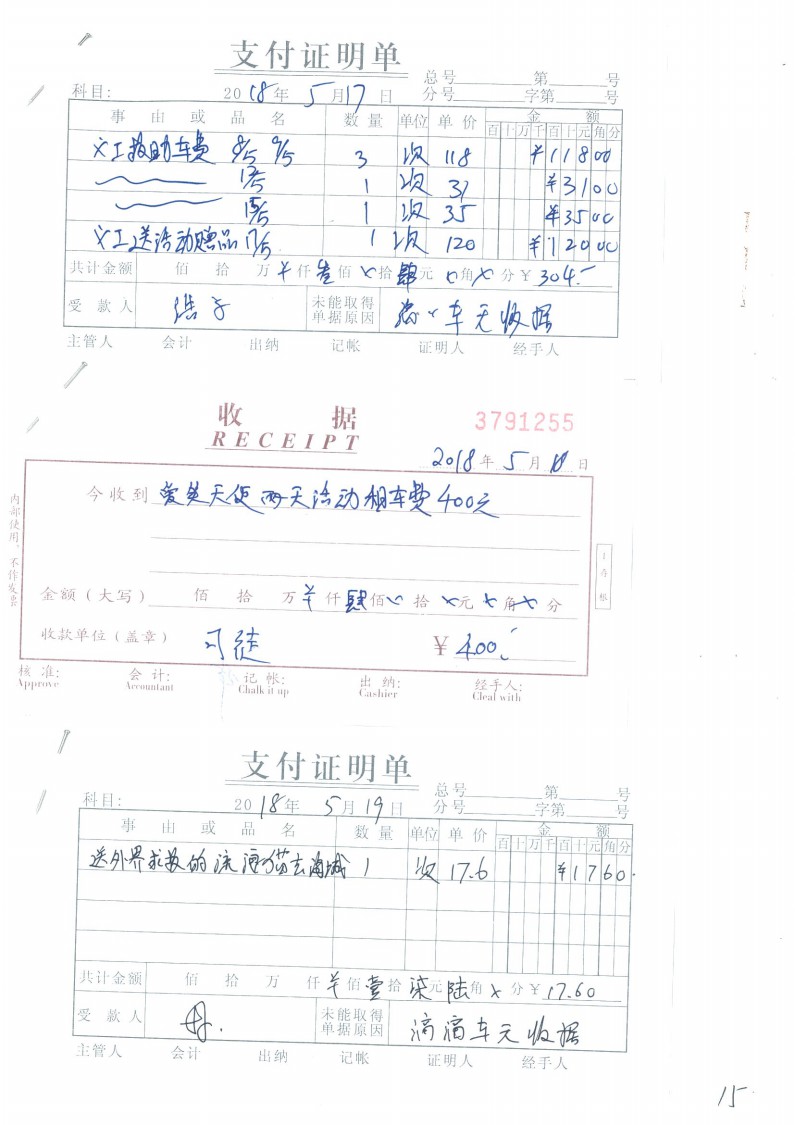 支付证明单
总号 第 号
科目： 2018年 5月17日 分号 字第 号
事由或品名 数量 单位 单价 金额
百十万千百十元角分
义工救助车费 8/5 9/5 3 次 118 ¥11800
1 次 31 ¥3100
1 次 35 ¥3500
义工送活动赠品 1 次 120 ¥12000
共计金额 佰 拾 万 ¥ 仟 叁佰 ㄨ拾 肆元 ㄨ角ㄨ分 ¥ 304.-
受款人 浩子 未能取得单据原因 车无收据
主管人 会计 出纳 记帐 证明人 经手人
收据 3791255
RECEIPT
2018年 5月 日
今收到 爱岂天使两天活动租车费400元
金额（大写） 佰 拾 万 ¥ 仟 肆佰 ㄨ拾 ㄨ元 ㄨ角ㄨ分
收款单位（盖章） 司徒 ¥ 400.-
内部使用，不作发票
核准： 会计： 记帐： 出纳： 经手人：
Approve Accountant Chalk it up Cashier Cleal with
支付证明单
总号 第 号
科目： 2018年 5月19日 分号 字第 号
事由或品名 数量 单位 单价 金额
百十万千百十元角分
送外界求救的流浪猫去 1 次 17.6 ¥1760
共计金额 佰 拾 万 仟 ¥佰 壹拾 柒元 陆角 ㄨ分 ¥ 17.60
受款人 未能取得单据原因 滴滴车无收据
主管人 会计 出纳 记帐 证明人 经手人
15